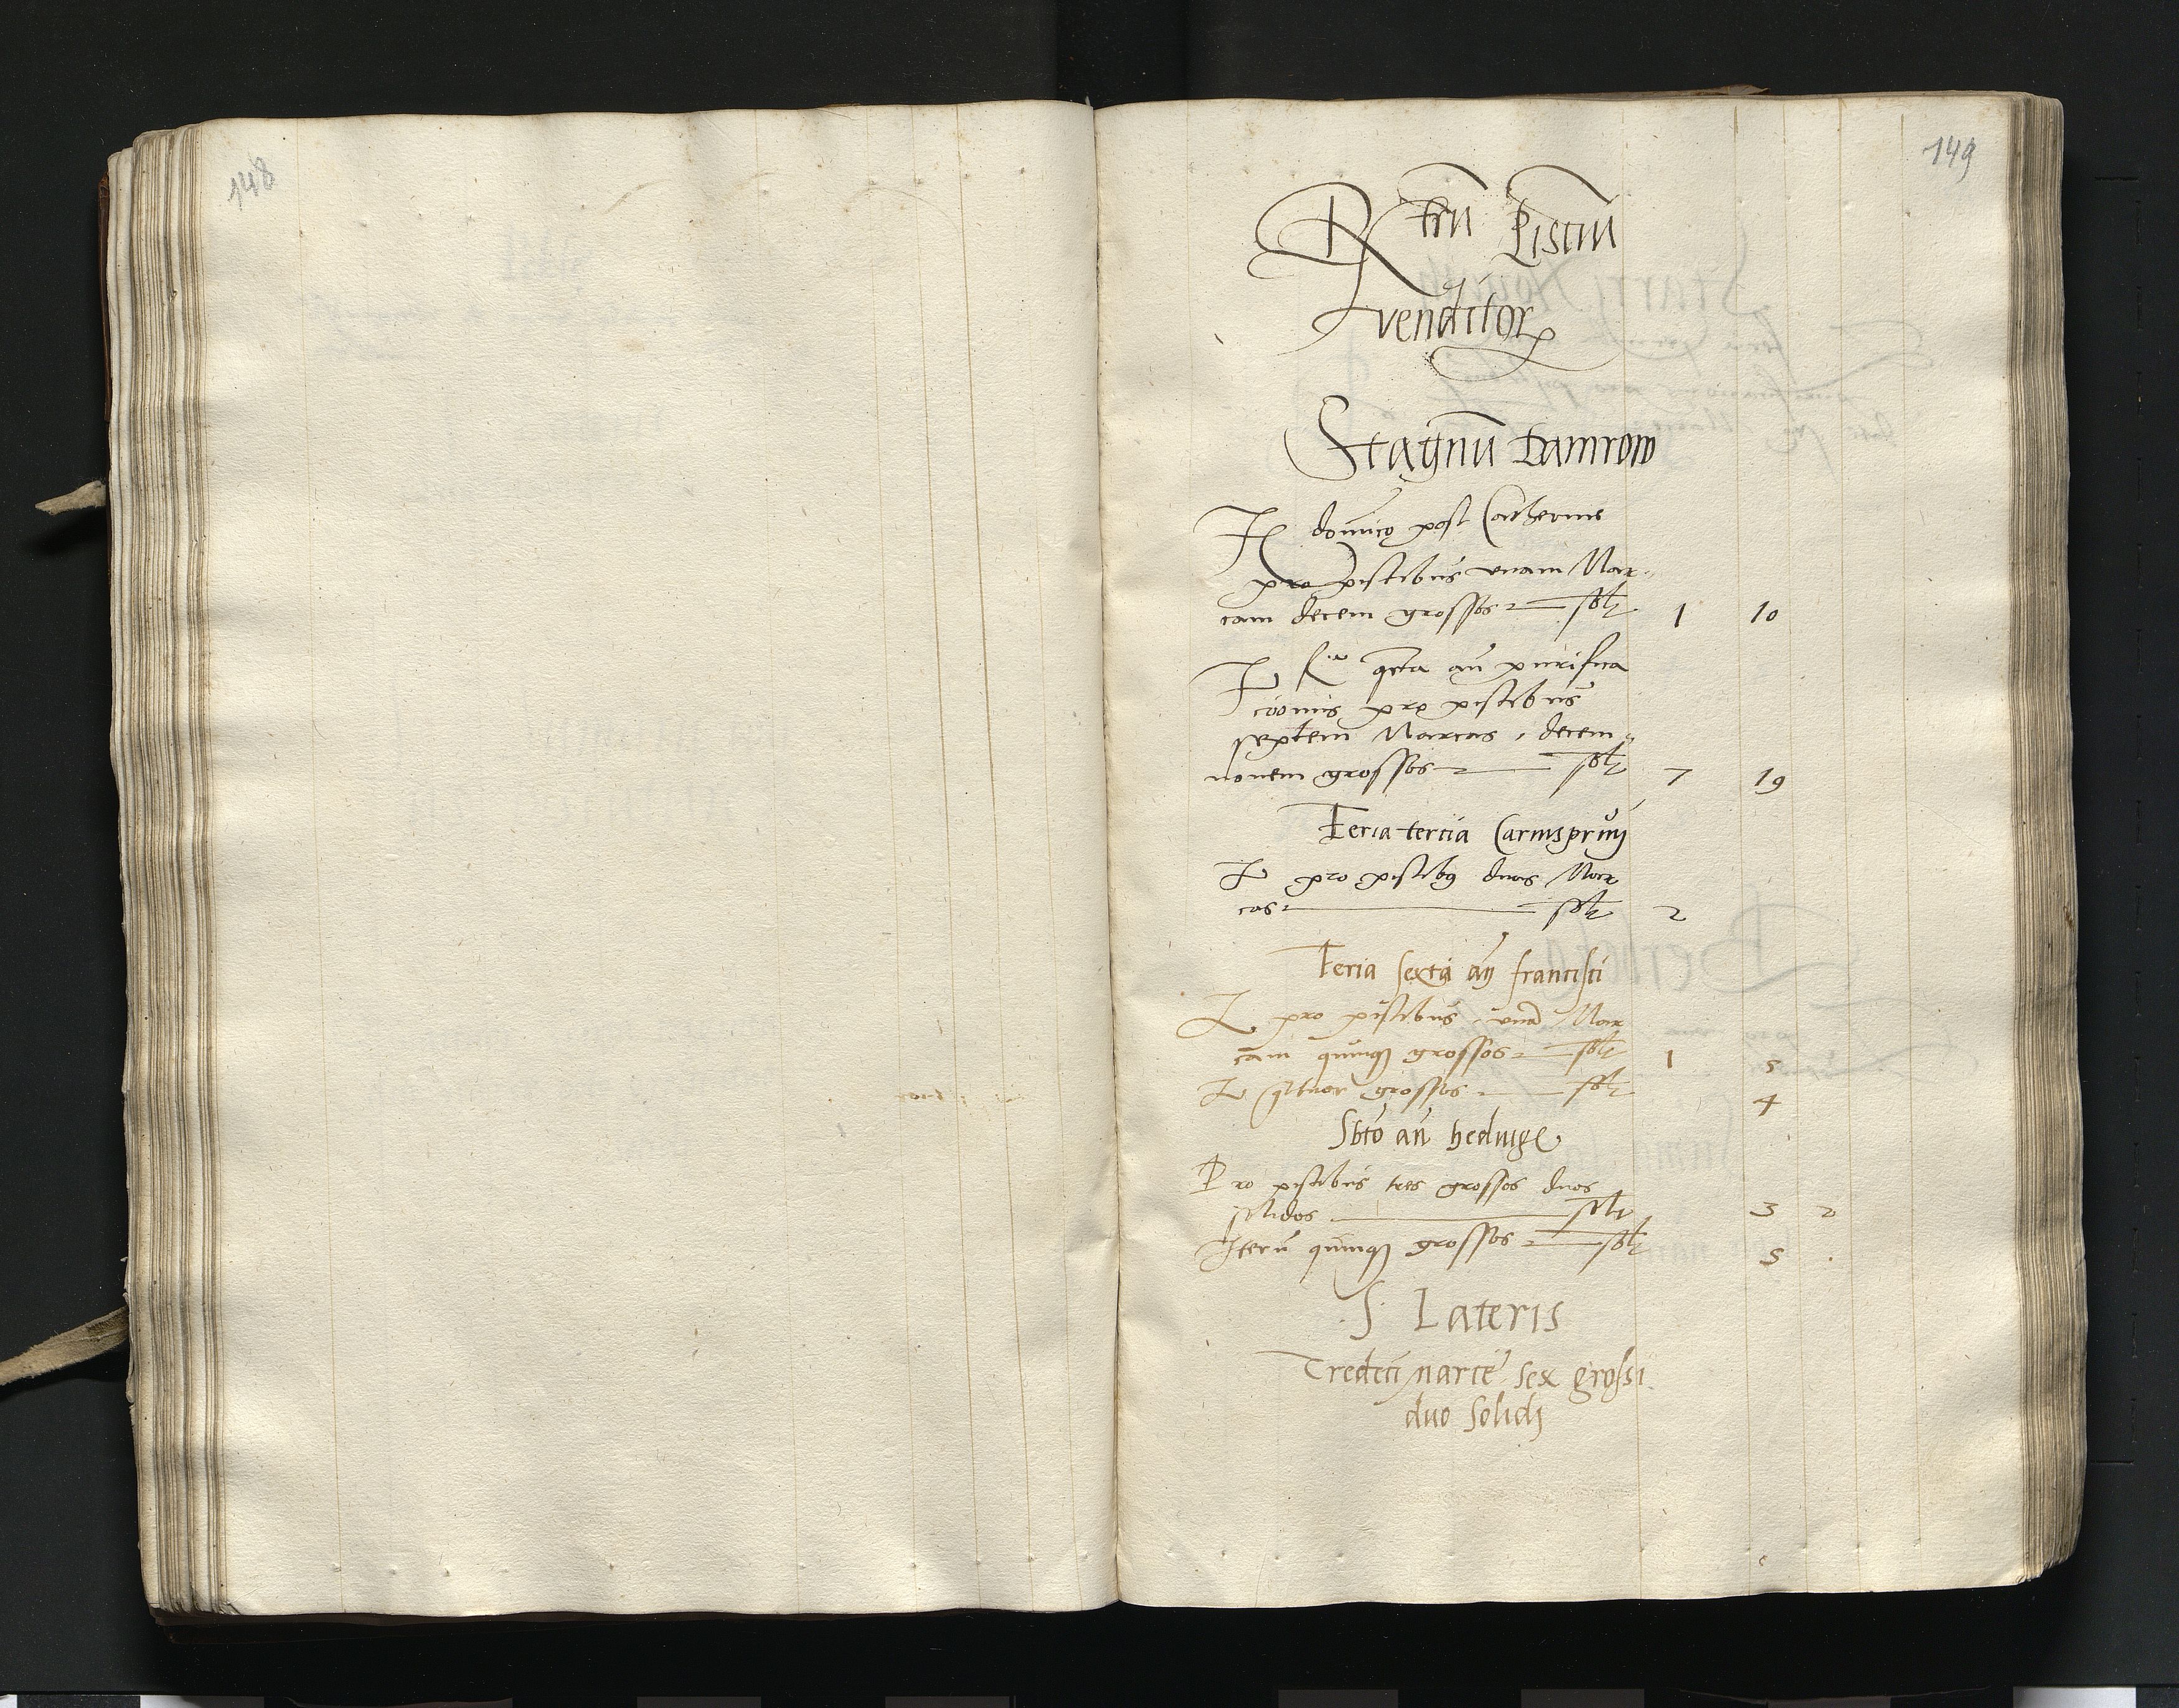 148
149
Rtrū Pisciū
venditor
Stagnū Damrow
It dominico post Catherine
pro piscibus unam Mar
cam decem grossos solt 1 10
It fria qrta añ purifica
cionis pro piscibus
septem Marcas decem
novem grossos solt 7 19
Feria tercia Carnisprivij
It pro piscibq duas Mar
cas solt 2
Feria sexta añ francisci
It pro piscibus unā Mar
cam quinqꝫ grossos solt 1 5
It qtuor grossos solt 4
Sbto añ hedwige
Pro piscibus tres grossos duos
solidos solt 3 2
Iterū quinqꝫ grossos solt 5
S Lateris
Tredeci marce sex grossi
duo solidi